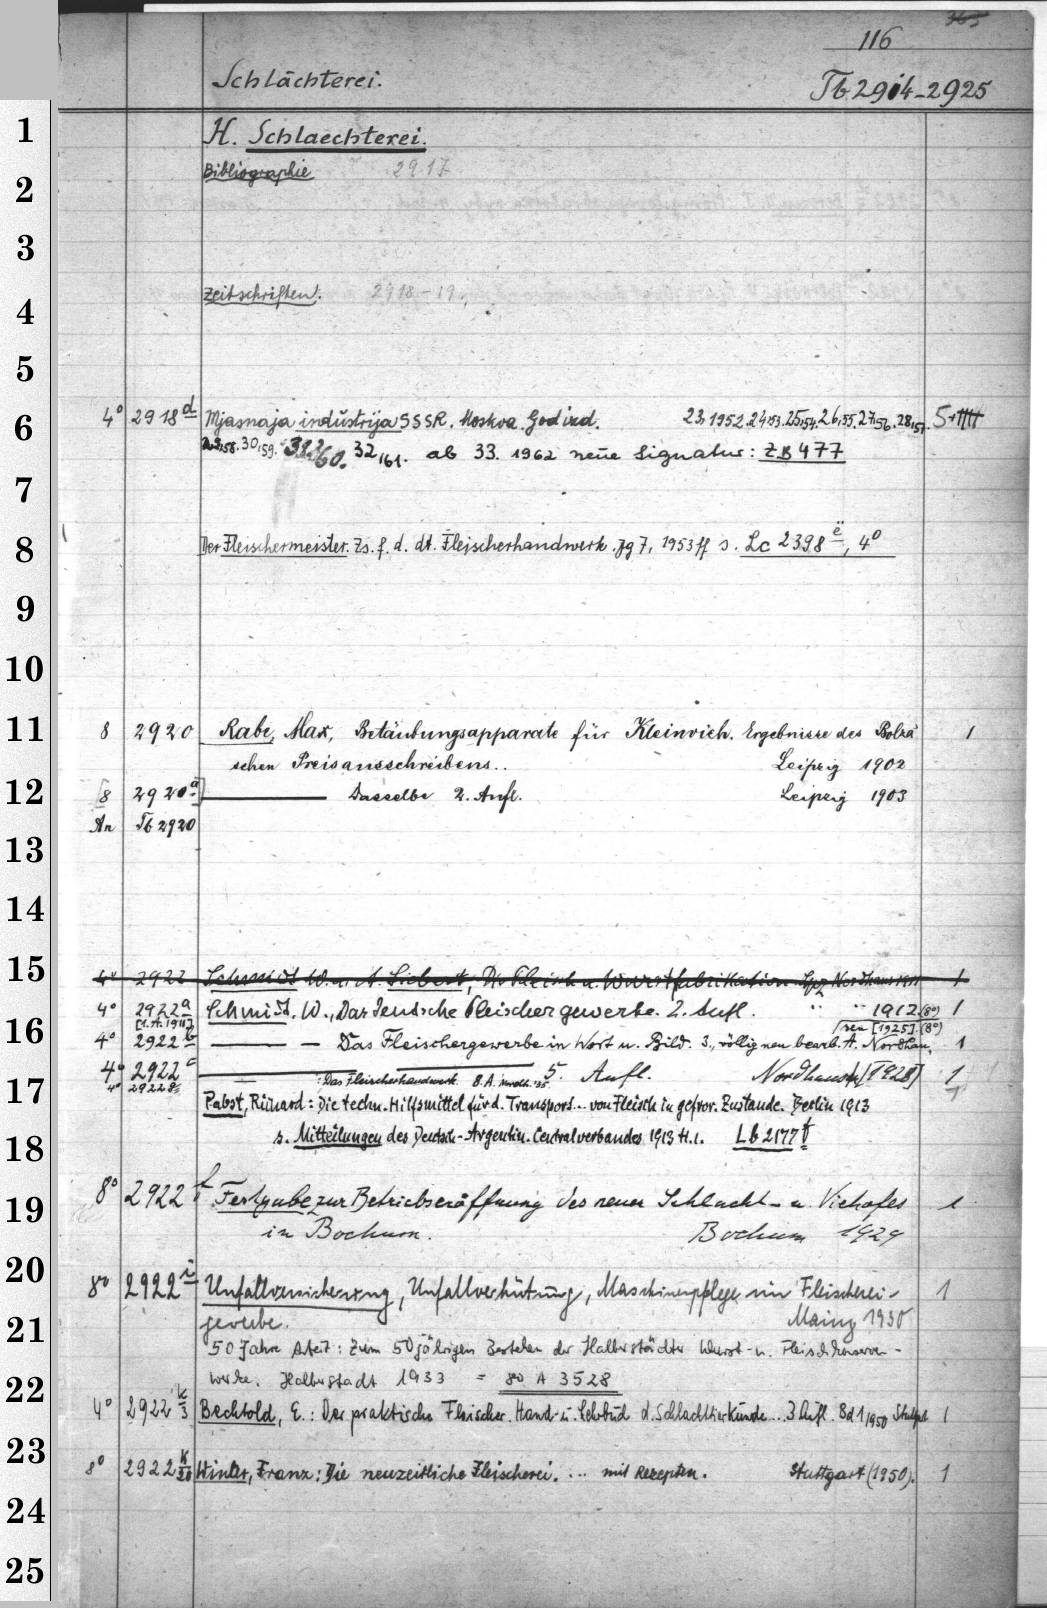 365
116
Schlächterei.
Tb 2914-2925
1 H. Schlaechterei.
Bibliographie 2917
2
3
Zeitschriften. 2918-19.
4
5
6 4° 2918 d Mjasnaja industrija SSSR. Moskva. God izd. 23.1952.24,53.25,54.26,55.27,56.28,57. 5+
29,58.30,59. 31,60. 32,61. ab 33. 1962 neue Signatur: ZB 477
7
8 Der Fleischermeister. Zs. f. d. dt. Fleischerhandwerk. Jg 7, 1953 ff s. Lc 2398 ë, 4°
9
10
11 8 2920 Rabe, Max, Betäubungsapparate für Kleinvieh. Ergebnisse des Bolza 1
schen Preisausschreibens.. Leipzig 1902
12 [8 2920 a] Dasselbe 2. Aufl. Leipzig 1903
An Tb 2920
13
14
15 4° 2922 Schmidt W. u. A. Siebert, Die Fleisch u. Wurstfabrikation Nordhausen 1
4° 2922 a Schmidt, W., Das deutsche Fleischergewerbe. 2. Aufl. " " 1912 (8°) 1
[1. A. 1911] neu [1925]. (8°)
16 4° 2922 b — — Das Fleischergewerbe in Wort u. Bild. 3., völlig neu bearb. A. Nordhau. 1
4° 2922 c — 5. Aufl. Nordhausen [1928] 1
17 4° 2922 : Das Fleischerhandwerk. 8. A. 1
Pabst, Richard: Die techn. Hilfsmittel für d. Transport... von Fleisch in gefror. Zustande. Berlin 1913
18 s. Mitteilungen des Deutsch-Argentin. Centralverbandes 1913 H. 1. Lb 2177 t
19 8° 2922 f Festgabe zur Betriebseröffnung des neuen Schlacht- u. Viehofes 1
in Bochum. Bochum 1929
20 8° 2922 i Unfallversicherung, Unfallverhütung, Maschinenpflege im Fleischerei- 1
21 gewerbe. Mainz 1930
50 Jahre Arbeit: Zum 50jährigen Bestehen der Halberstädter Wurst- u. Fleischkonserven-
22 werke. Halberstadt 1933 = 80 A 3528
4° 2922 k/3 Bechtold, E.: Der praktische Fleischer. Hand- u. Lehrbuch d. Schlachttierkunde... 3. Aufl. Bd 1 1950 Stuttgart 1
23 8° 2922 k/20 Winter, Franz: Die neuzeitliche Fleischerei. ... mit Rezepten. Stuttgart (1950). 1
24
25